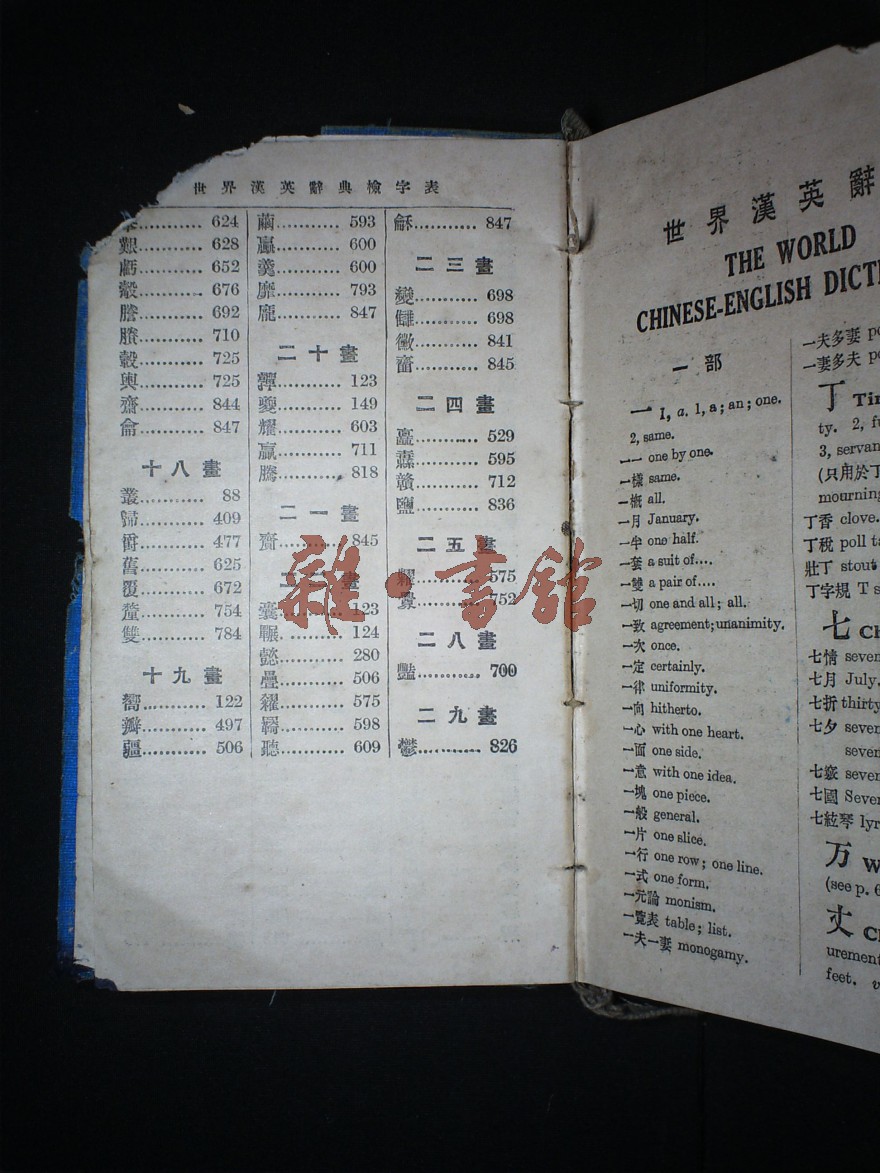 世界漢英辭典檢字表
624
艱 628
虧 652
轂 676
謄 692
賸 710
轂 725
輿 725
齋 844
龠 847
十八畫
叢 88
歸 409
爵 477
舊 625
覆 672
釐 754
雙 784
十九畫
嚮 122
瓣 497
疆 506
繭 593
羸 600
羹 600
靡 793
龐 847
二十畫
123
夔 149
耀 603
贏 711
騰 818
二一畫
齎 845
二二畫
囊 123
囅 124
懿 280
疊 506
糴 575
羇 598
聽 609
龢 847
二三畫
變 698
讎 698
黴 841
齏 845
二四畫
矗 529
纛 595
贛 712
鹽 836
二五畫
糶 575
釁 752
二八畫
豔 700
二九畫
鬱 826
雜·書館
世界漢英辭
THE WORLD
CHINESE-ENGLISH DICT
一部
一 1, a. 1, a; an; one.
2, same.
一一 one by one.
一樣 same.
一概 all.
一月 January.
一半 one half.
一套 a suit of....
一雙 a pair of....
一切 one and all; all.
一致 agreement; unanimity.
一次 once.
一定 certainly.
一律 uniformity.
一向 hitherto.
一心 with one heart.
一面 one side.
一意 with one idea.
一塊 one piece.
一般 general.
一片 one slice.
一行 one row; one line.
一式 one form.
一元論 monism.
一覽表 table; list.
一夫一妻 monogamy.
一夫多妻 po
一妻多夫 po
丁 Tin
ty. 2, fu
3, servan
(只用於丁
mourning
丁香 clove.
丁稅 poll ta
壯丁 stout
丁字規 T s
七 CH
七情 seven
七月 July.
七折 thirty
七夕 seven
seven
七竅 seven
七國 Seven
七絃琴 lyr
万 W
(see p. 6
丈 C
urement
feet. v